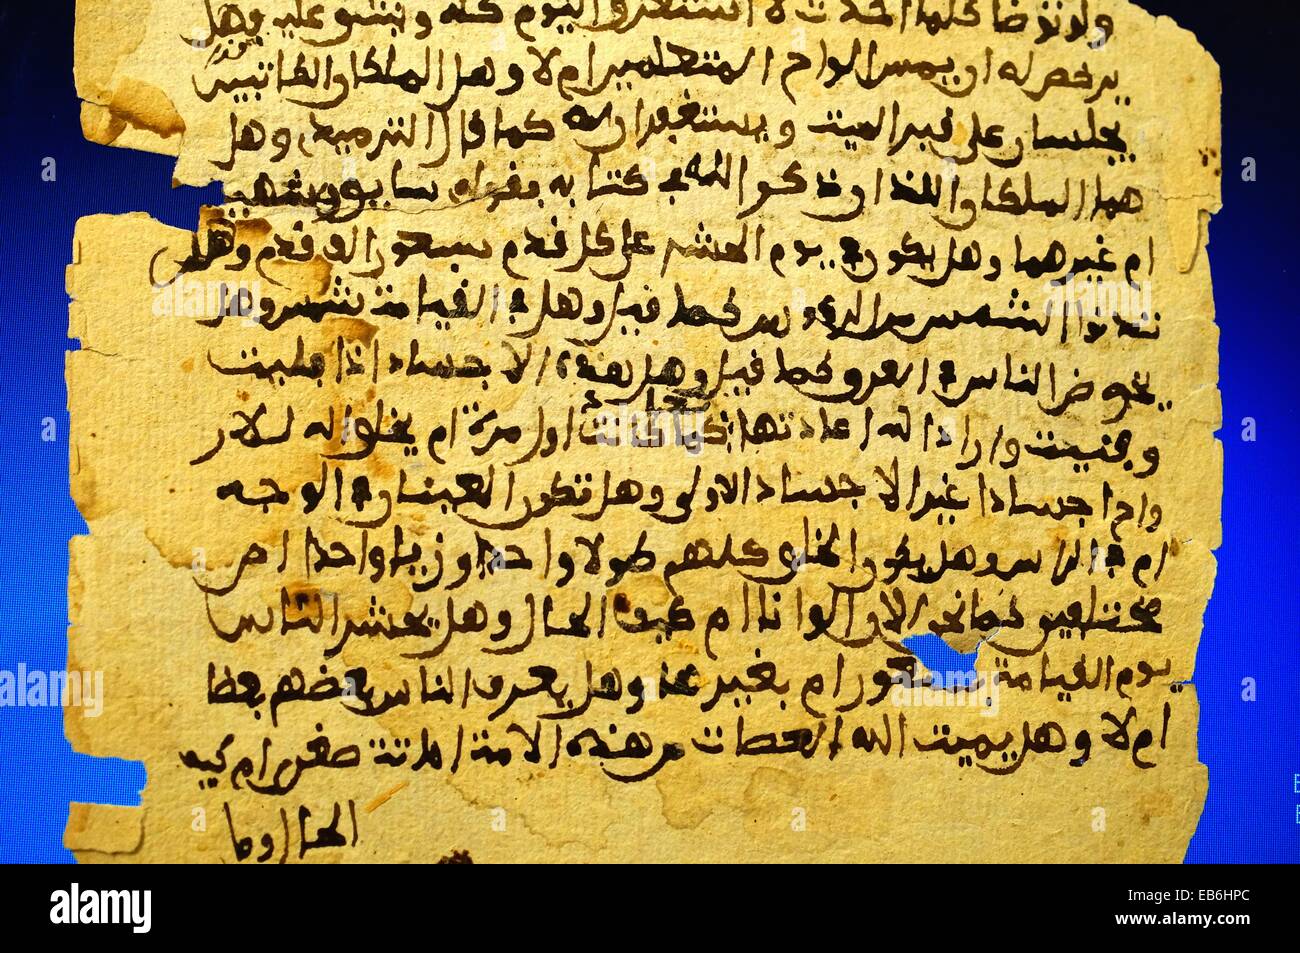 ولو توضا كلما احدث لا استغفروا اليوم كله ويشق عليه وهل
يرخص له ان يمس الواح المتعلمين ام لا وهل الملكان الكاتبين
يجلسان على قبر الميت ويستغفران له كما قال الترميذي وهل
هما الملكان اللذان ذكر الله في كتابه بقوله سايق وشهيد
ام غيرهما وهل يكون في يوم الحشر على كل قدم سبعون الف قدم وهل
تدنوا الشمس من الرءوس كما قيل وهل في القيامة شمس وهل
يخوض الناس في العرق كما قيل وهل هذه الاجساد اذا بليت
وفنيت واراد الله اعادتها كما كانت اول مرة ام يخلق الله للار
واح اجسادا غير الاجساد الاولى وهل تكون العينان في الوجه
ام في الراس وهل يكون الخلق كلهم طولا واحدا وزيا واحدا ام
مختلفين كما نحن الان الوانا ام كيف الحال وهل يحشر الناس
يوم القيامة ام بغير وهل يعرف الناس بعضهم بعضا
ام لا وهل يميت الله العصاة من هذه الامة اماتة صغرى ام كيف
الحال وما
alamy
a
EB6HPC
www.alamy.com